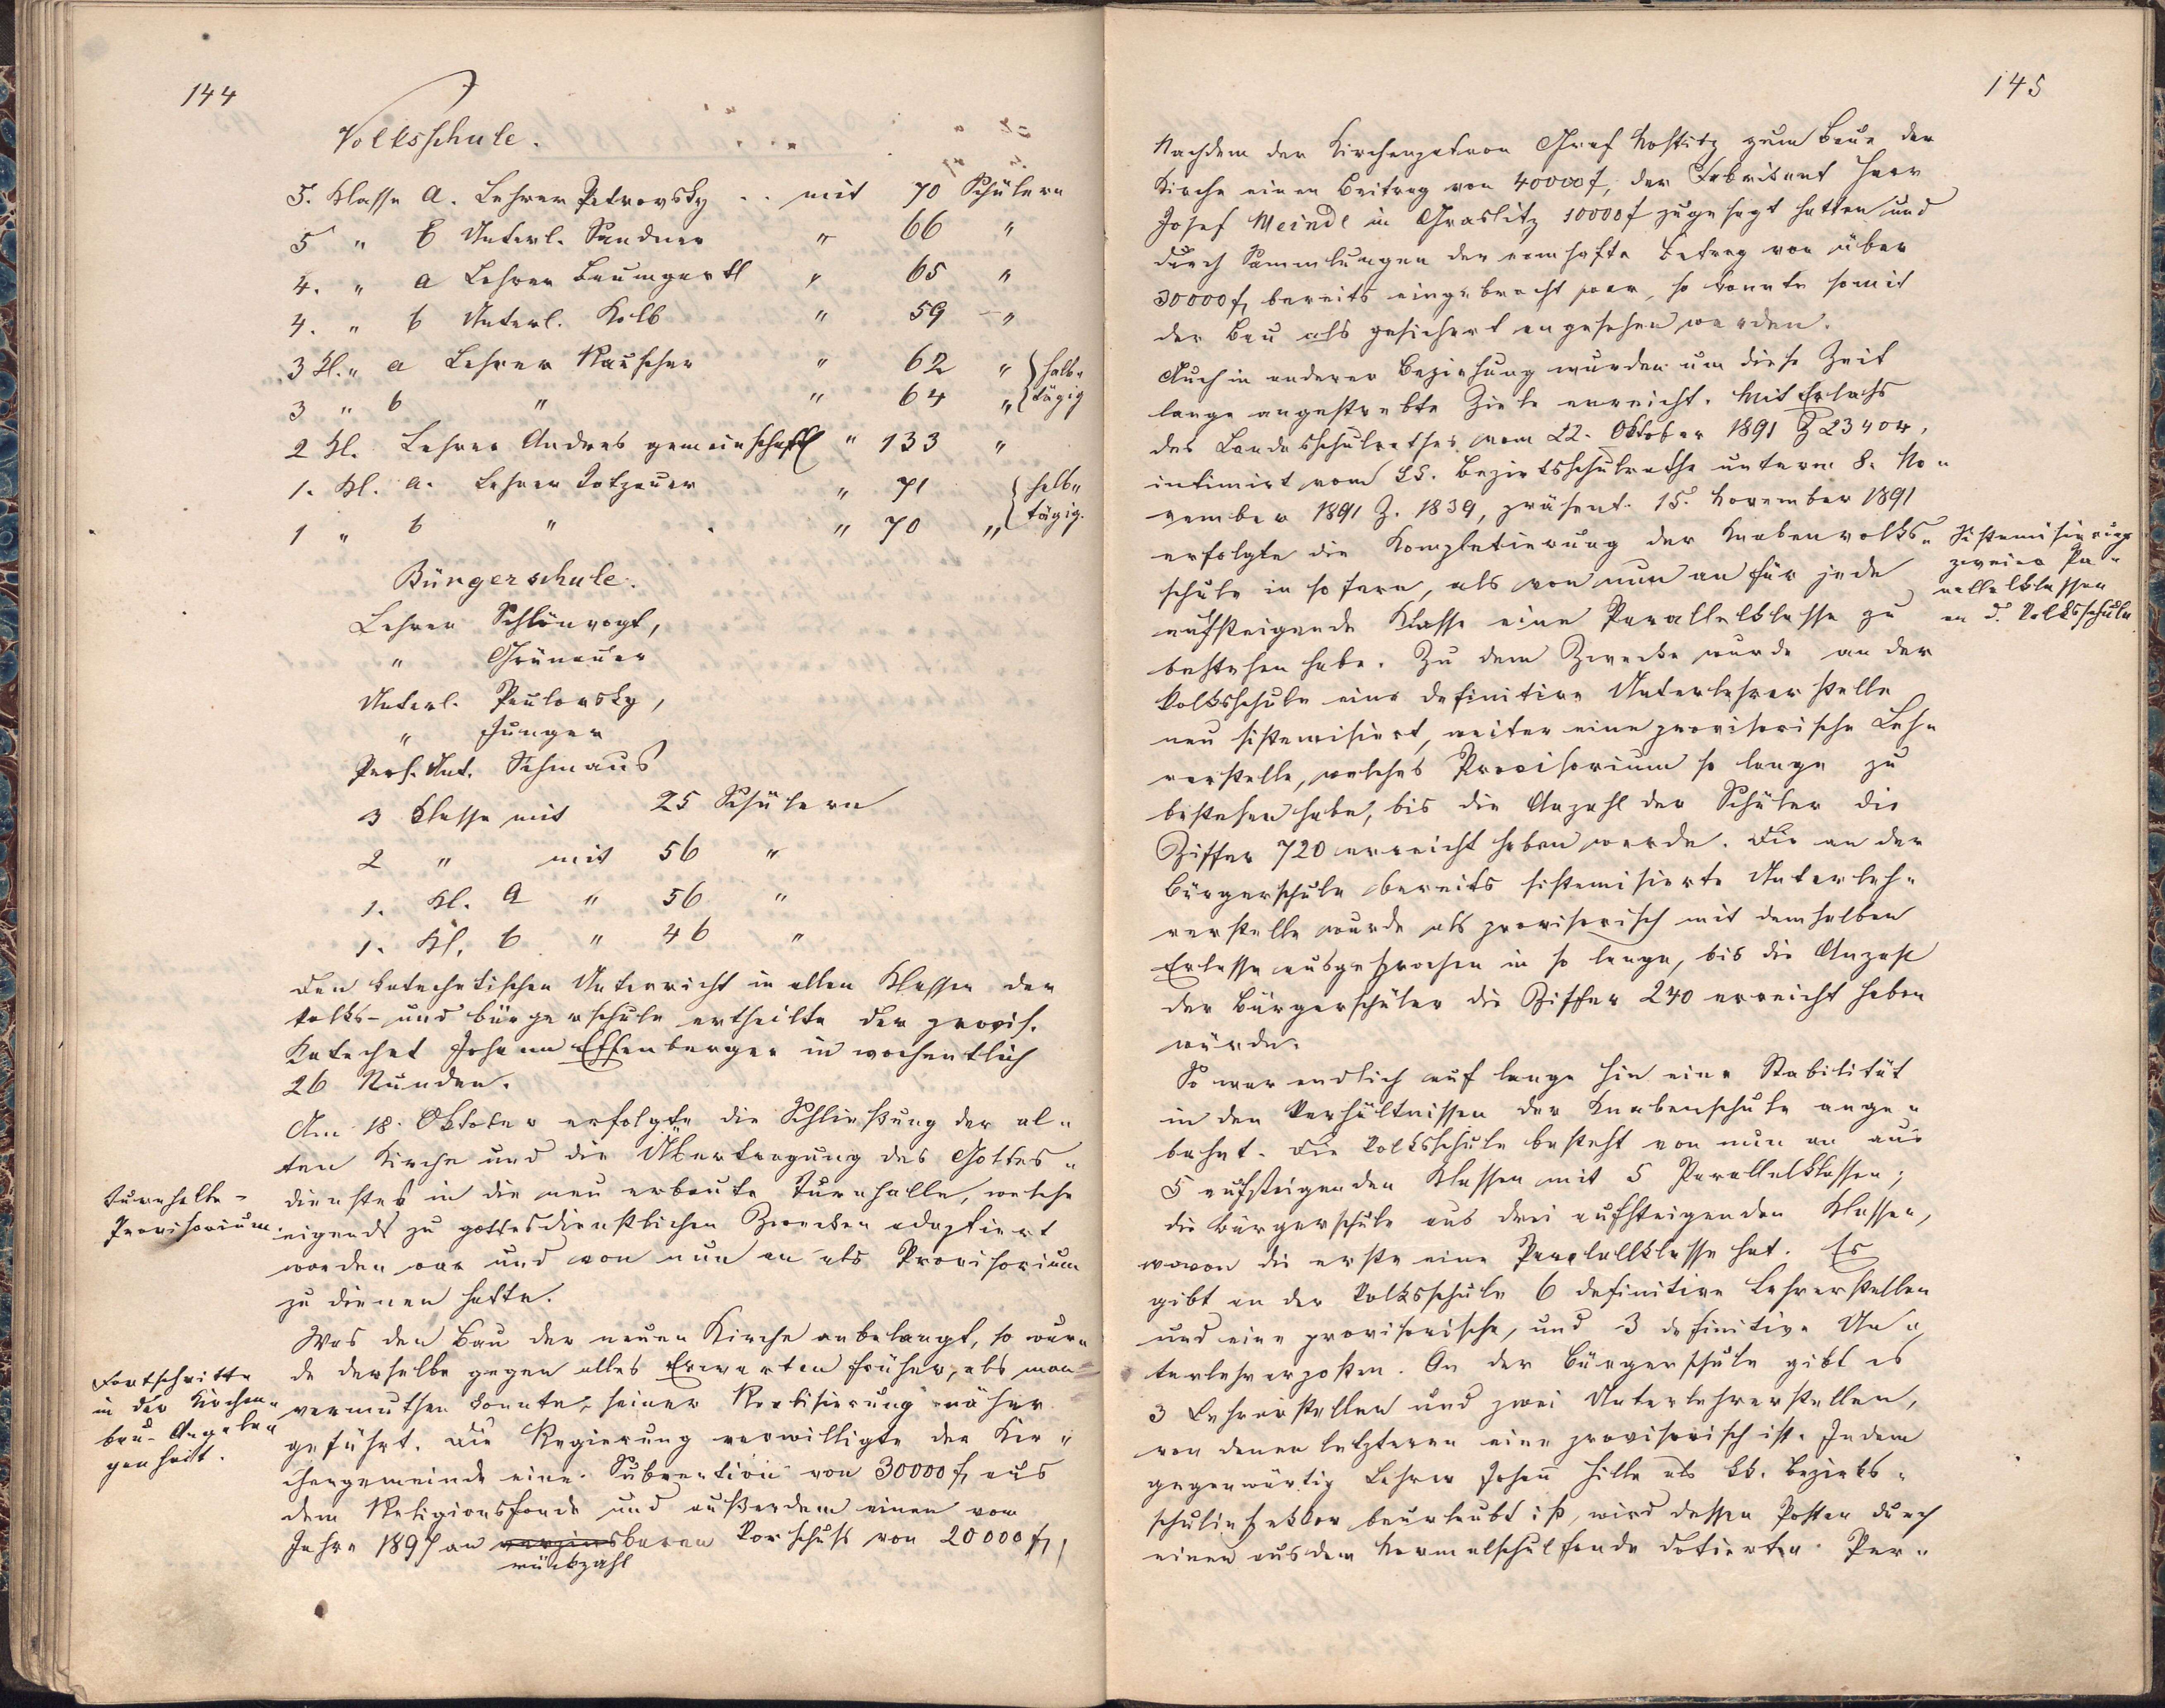 144
Volksschule.
5. Klasse a. Lehrer Petrovsky . . mit 70 Schülern
5 " b Unterl. Sandner " 66 "
4. " a Lehrer Baumgartl " 65 "
4. " b Unterl. Kolb " 59 "
3 Kl. " a Lehrer Rauscher " 62 " } halb-
3 " b " " 64 " } tägig
2 Kl. Lehrer Andres gemeinschaftl " 133 "
1. Kl. a. Lehrer Totzauer " 71 { halb-
1 " b " " 70 " { tägig.
Bürgerschule.
Lehrer Schlönvogt,
" Grünauer
Unterl. Paulovsky,
" Junger
Prof. Unt. Schmaus
3 Klasse mit 25 Schülern
2 " mit 56 "
1. Kl. a " 56 "
1. Kl. b " 46 "
Den katechetischen Unterricht in allen Klassen der
Volks- und Bürgerschule ertheilte der provis.
Katechet Johann Effenberger in wochentlich
26 Stunden.
Am 18. Oktober erfolgte die Schließung der al-
ten Kirche und die Übertragung des Gottes-
Turnhalle-
dienstes in die neu erbaute Turnhalle, welche
Provisorium.
eigends zu gottesdienstlichen Zwecken adaptiert
worden war und von nun an als Provisorium
zu dienen hatte.
Was den Bau der neuen Kirche anbelangt, so wur-
Fortschritte
de derselbe gegen alles Erwarten früher, als man
in der Kirchen-
vermuthen konnte, seiner Realisierung näher
bau-Angele-
geführt. Die Regierung verwilligte der Kir-
genheit.
chengemeinde eine Subvention von 30000 f, aus
dem Religionsfonds und außerdem einen vom
Jahre 1897 an verzinsbaren Vorschuß von 20000 f,
rückzahl
145
Nachdem der Kirchenpatron Graf Nostitz zum Baue der
Kirche einen Beitrag von 40000 f, der Fabrikant Herr
Josef Meindl in Graslitz 10000 f zugesagt hatten und
durch Sammlungen der namhafte Betrag von über
30000 f, bereits eingebracht war, so konnte somit
der Bau als gesichert angesehen werden.
Auch in anderer Beziehung wurden um diese Zeit
lange angestrebte Ziele erreicht. Mit Erlaß
des Landesschulrathes vom 22. Oktober 1891 Z 23404,
intimirt vom k.k. Bezirksschulrathe unterm 8. No-
vember 1891 Z. 1839, präsent. 15. November 1891
erfolgte die Kompletierung der Knabenvolks-
Sistemisierung
zweier Pa-
rallelklassen
an d. Volksschule
schule in sofern, als von nun an für jede
aufsteigende Klasse eine Parallelklasse zu
bestehen habe. Zu dem Zwecke wurde an der
Volksschule eine definitive Unterlehrerstelle
neu sistemisiert, weiter eine provisorische Leh-
rerstelle, welches Provisorium so lange zu
bestehen habe, bis die Anzahl der Schüler die
Ziffer 720 erreicht haben werde. Die an der
Bürgerschule bereits sistemisierte Unterleh-
rerstelle wurde als provisorisch mit demselben
Erlasse ausgesprochen in so lange, bis die Anzahl
der Bürgerschüler die Ziffer 240 erreicht haben
würde.
So war endlich auf lange hin eine Stabilität
in den Verhältnissen der Knabenschule ange-
bahnt. Die Volksschule besteht von nun an aus
5 aufsteigenden Klassen mit 5 Parallelklassen;
die Bürgerschule aus drei aufsteigenden Klassen,
wovon die erste eine Parallelklasse hat. Es
gibt an der Volksschule 6 definitive Lehrerstellen
und eine provisorische, und 3 definitive Un-
terlehrerposten. An der Bürgerschule gibt es
3 Lehrerstellen und zwei Unterlehrerstellen,
von denen letzteren eine provisorisch ist. Indem
gegenwärtig Lehrer Johann Hille als k.k. Bezirks-
schulinspektor beurlaubt ist, wird dessen Posten durch
einen aus dem Normalschulfonde dotierten Per-